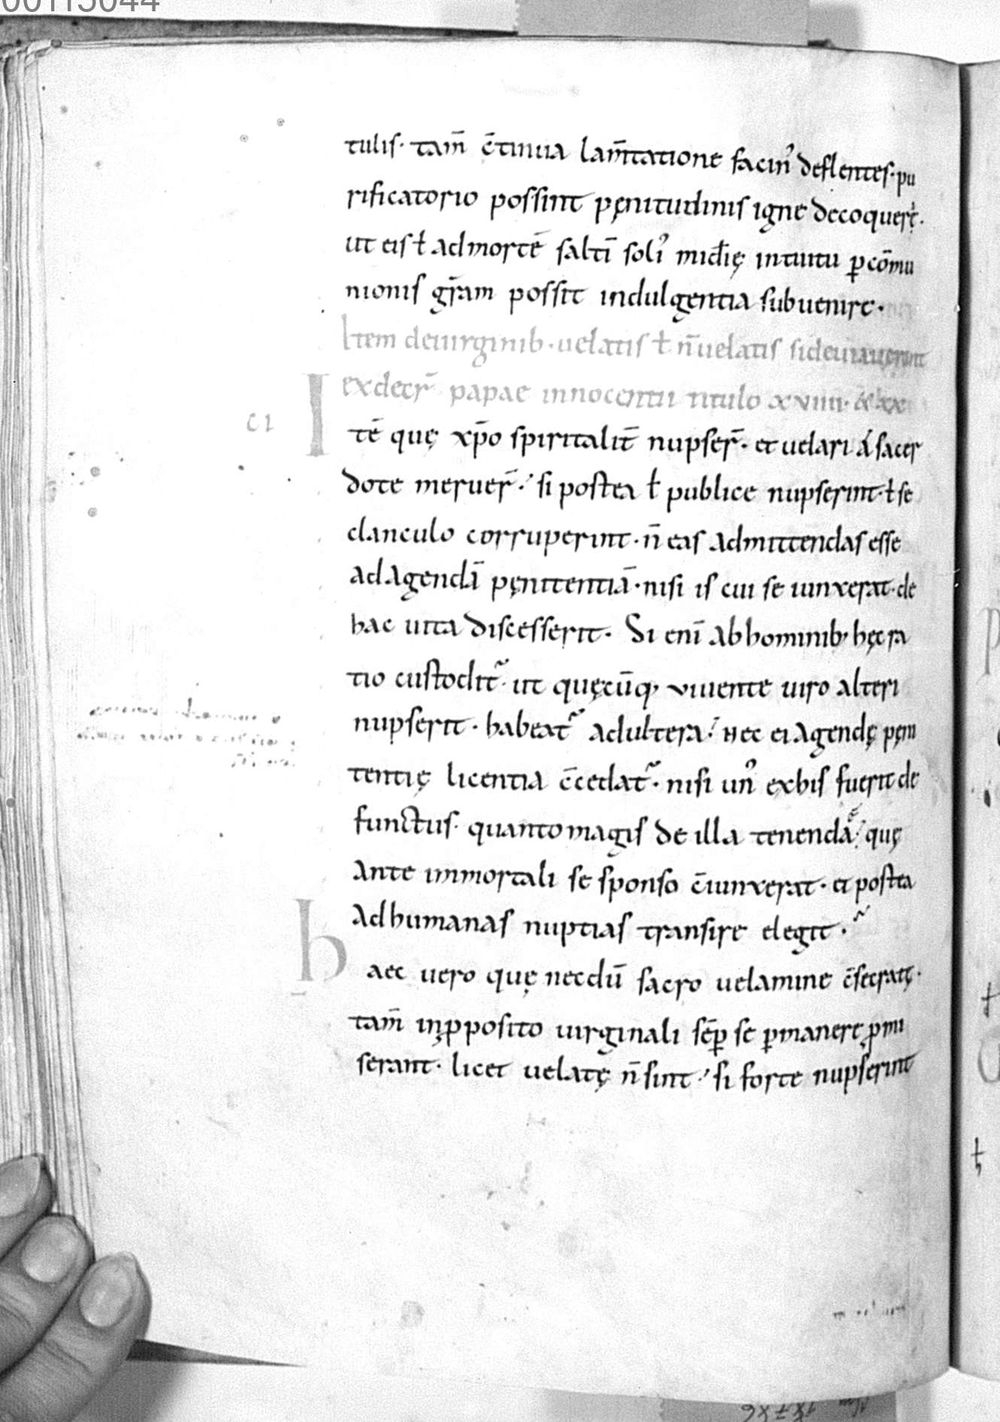 tulis· tam̄ c̄tinua lam̄tatione facin᷒ deflentes· pu
rificatorio possint pęnitudinis igne decoquerę̄·
ut eis ł ad mortē saltī soli᷒ mid̄ię intuitu ꝑ cōmu
nionis gr̄am possit indulgentia subuenire·
Item de uirginib· uelatis ł n̄ uelatis si deuiauerint
ex decr̄ papae innocentii titulo xviiii· & xx
CI
Itē quę xp̄o spiritalit̄ nupser̄· et uelari á sacer
dote meruer̄·' si postea ł publice nupserint· ł se
clanculo corruperint· n̄ eas admittendas esse
ad agendā pęnitentiā· nisi is cui se iunxerat· de
hac uita discesserit· Si enī ab hominib; hęc ra
tio custodit᷑· ut quęcūq; uiuente uiro alteri
nupserit· habeat᷑ adultera·' nec ei agendę pęni
tentię licentia c̄cedat᷑· nisi un᷒ ex his fuerit de
functus· quanto magis de illa tenendā quę
ante immortali se sponso c̄iunxerat· et postea
ad humanas nuptias transire elegit·
haec uero quę necdū sacro uelamine c̄secratę·
tam̄ in ꝓposito uirginali sēꝑ se ꝑmanere ꝓmi
serant· licet uelatę n̄ sint·' si forte nupserint